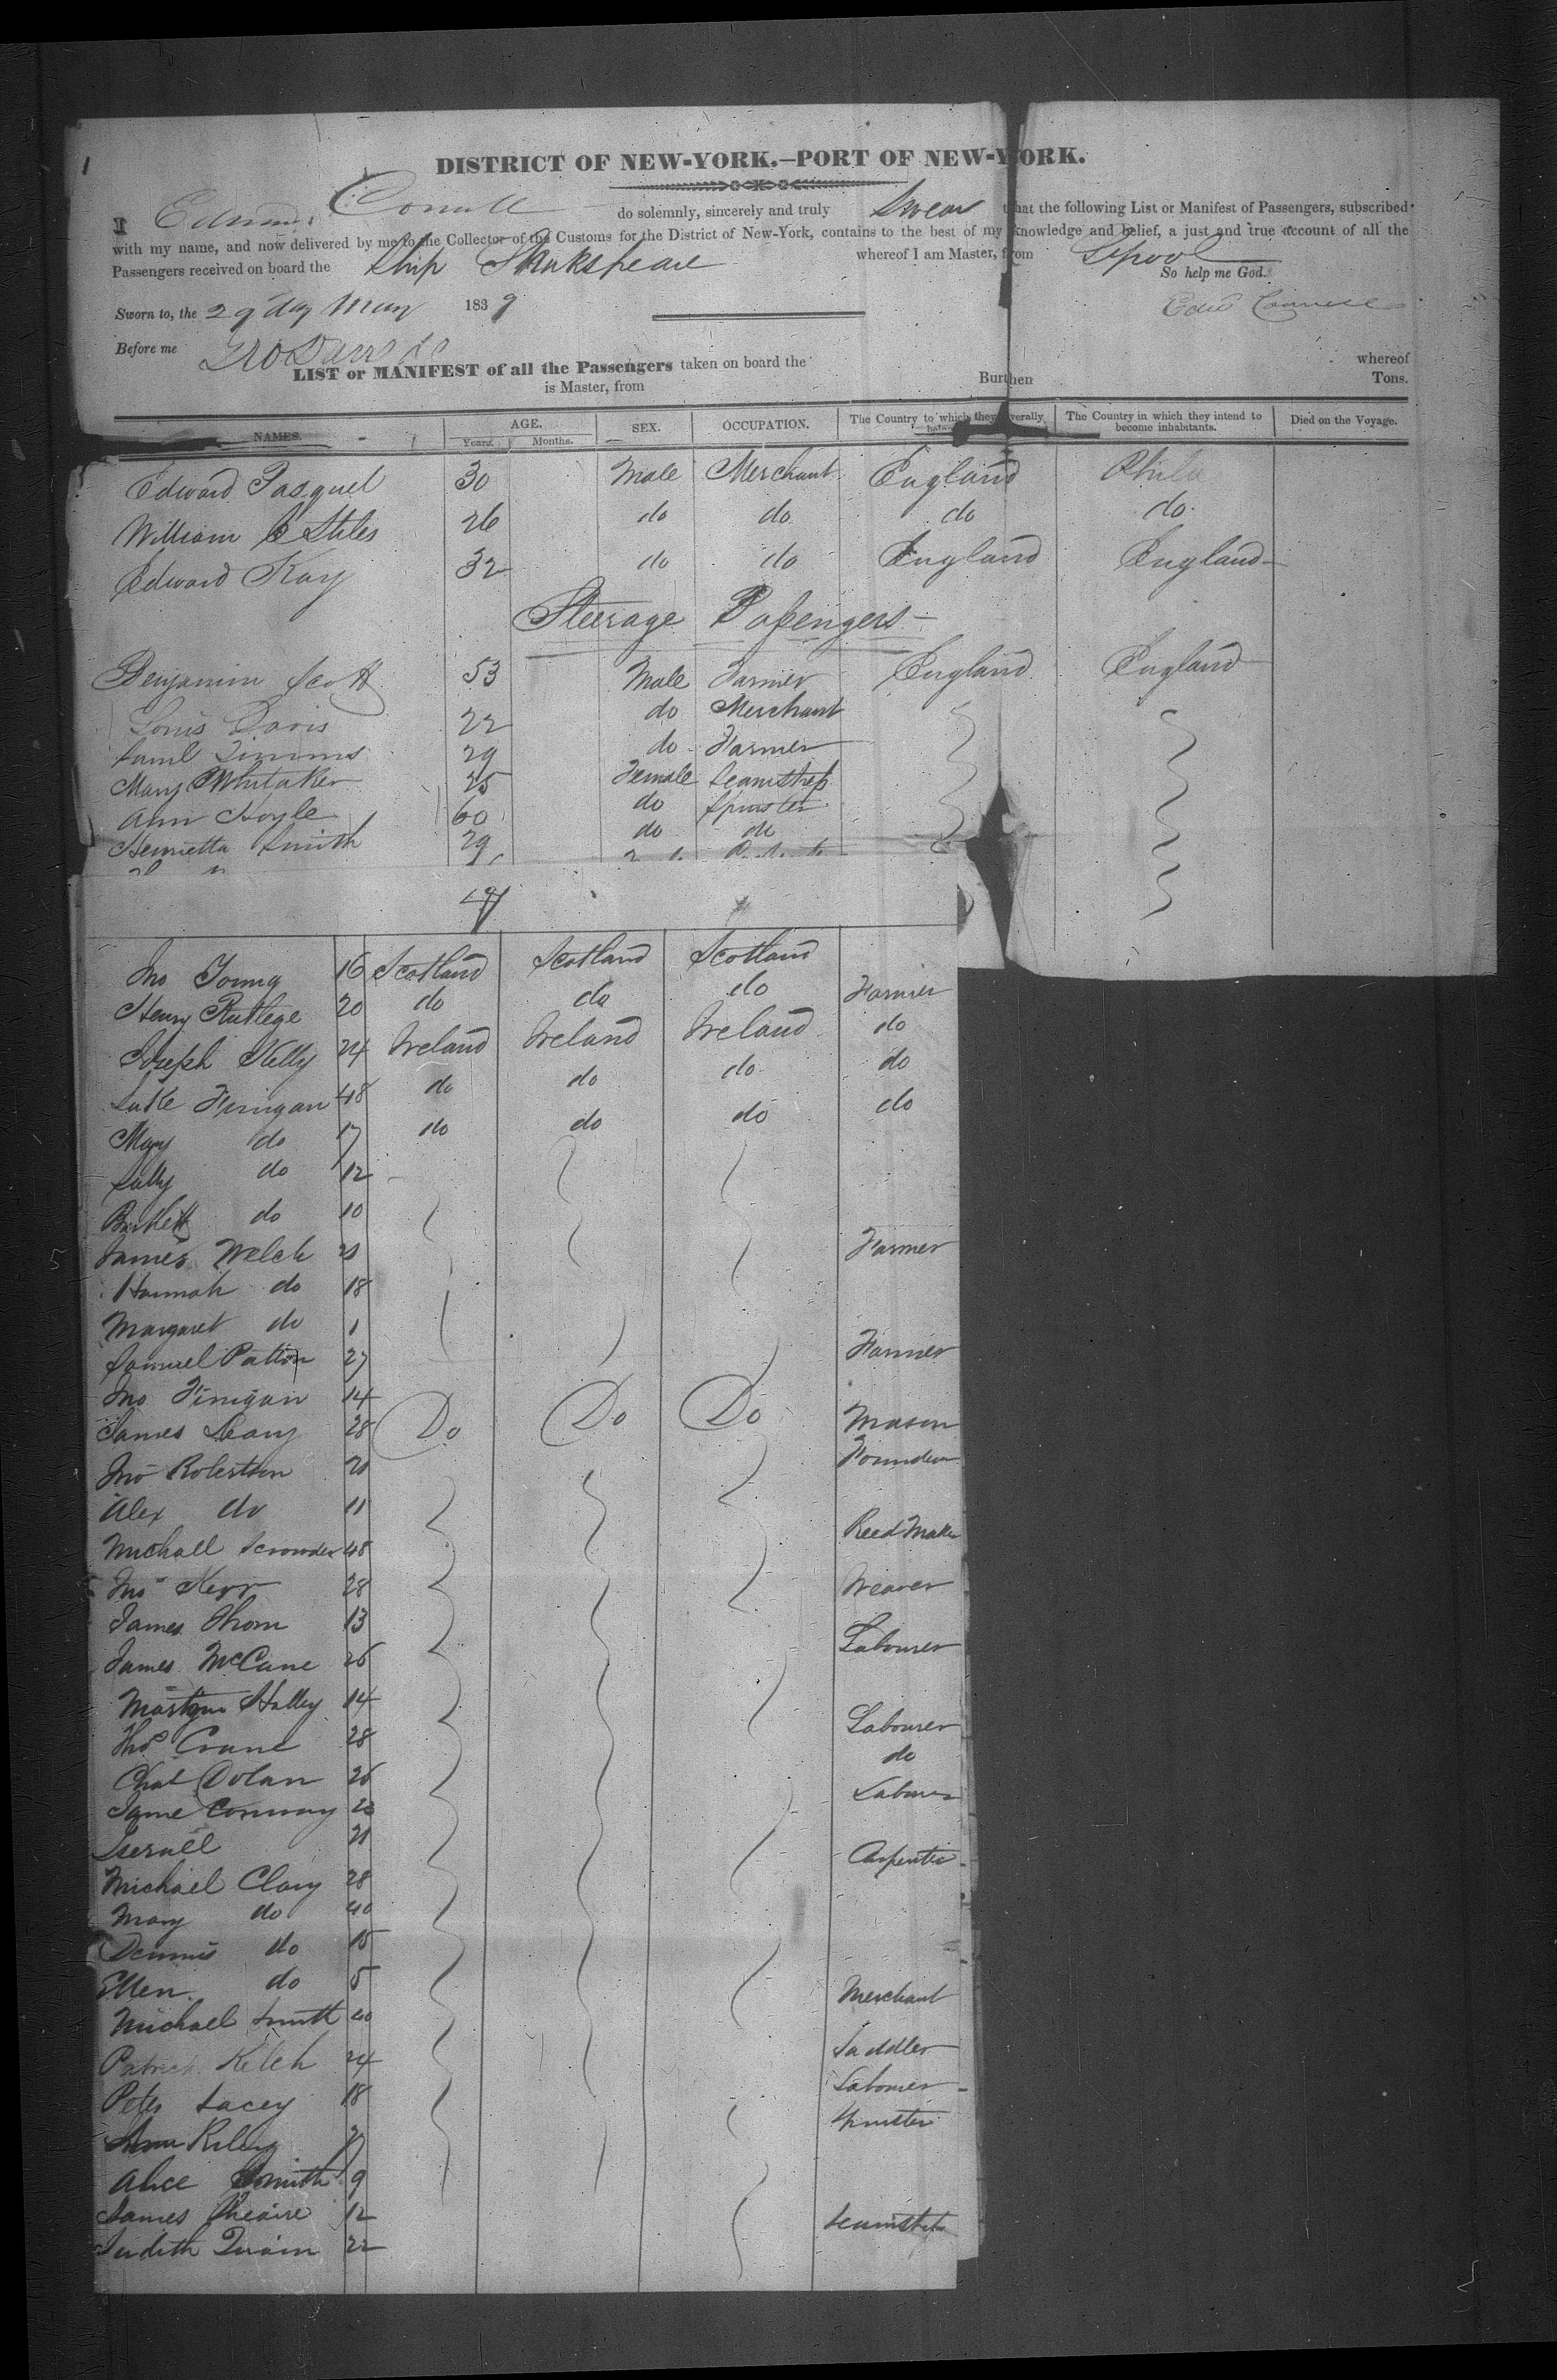 1
DISTRICT OF NEW-YORK.—PORT OF NEW-YORK.
I do solemnly, sincerely and truly Swear that the following List or Manifest of Passengers, subscribed
with my name, and now delivered by me to the Collector of the Customs for the District of New-York, contains to the best of my knowledge and belief, a just and true account of all the
Passengers received on board the Ship Shakspeare whereof I am Master, from Lpool
So help me God.
Sworn to, the 29 day May 1839
Before me
LIST or MANIFEST of all the Passengers taken on board the whereof
is Master, from Burthen Tons.
NAMES. AGE. SEX. OCCUPATION. The Country to which they severally The Country in which they intend to become inhabitants. Died on the Voyage.
Years. Months.
Edward Pasquel 30 Male Merchant England Phila
William C Stiles 26 do do do do
Edward Kay 32 do do England England
Steerage Passengers
Benjamin Scott 53 Male Farmer England England
Louis Davis 22 do Merchant
Saml Timms 29 do Farmer
Mary Whitaker 25 Female Seamstress
Ann Hoyle 60 do Spinster
Henrietta Smith 29 do do
Jno Young 16 Scotland Scotland Scotland
Henry Rutlege 20 do do do Farmer
Joseph Kelly 24 Ireland Ireland Ireland do
Luke Finigan 48 do do do do
Mary do 17 do do do do
Sally do 12
do 10
James Welch 21 Farmer
Hannah do 18
Margaret do 1
Samuel Patton 27 Farmer
Jno Finigan 14
James Leary 28 Do Do Do Mason
Jno Robertson 21 Founder
Alex do 11
Michall 48 Reed Maker
Jno Kerr 28 Weaver
James Thom 13
James McCane 26 Labourer
Halley 14
Thos Crane 28 Labourer
Dolan 26 do
Jame Conway 22 Labourer
21
Michael Clary 28 Carpenter
Mary do 40
Dennis do 15
Ellen do 5
Michael Smith 40 Merchant
Patrick Kelch 24 Saddler
Peter Lacey 18 Labourer
Riley Spinster
Alice Smith 9
James 12
Judith 22 Seamstress